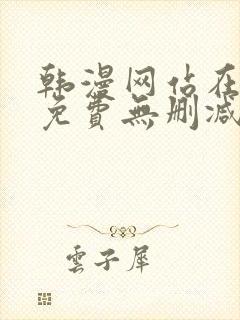 韩漫网站在
免費無删减
雲子犀